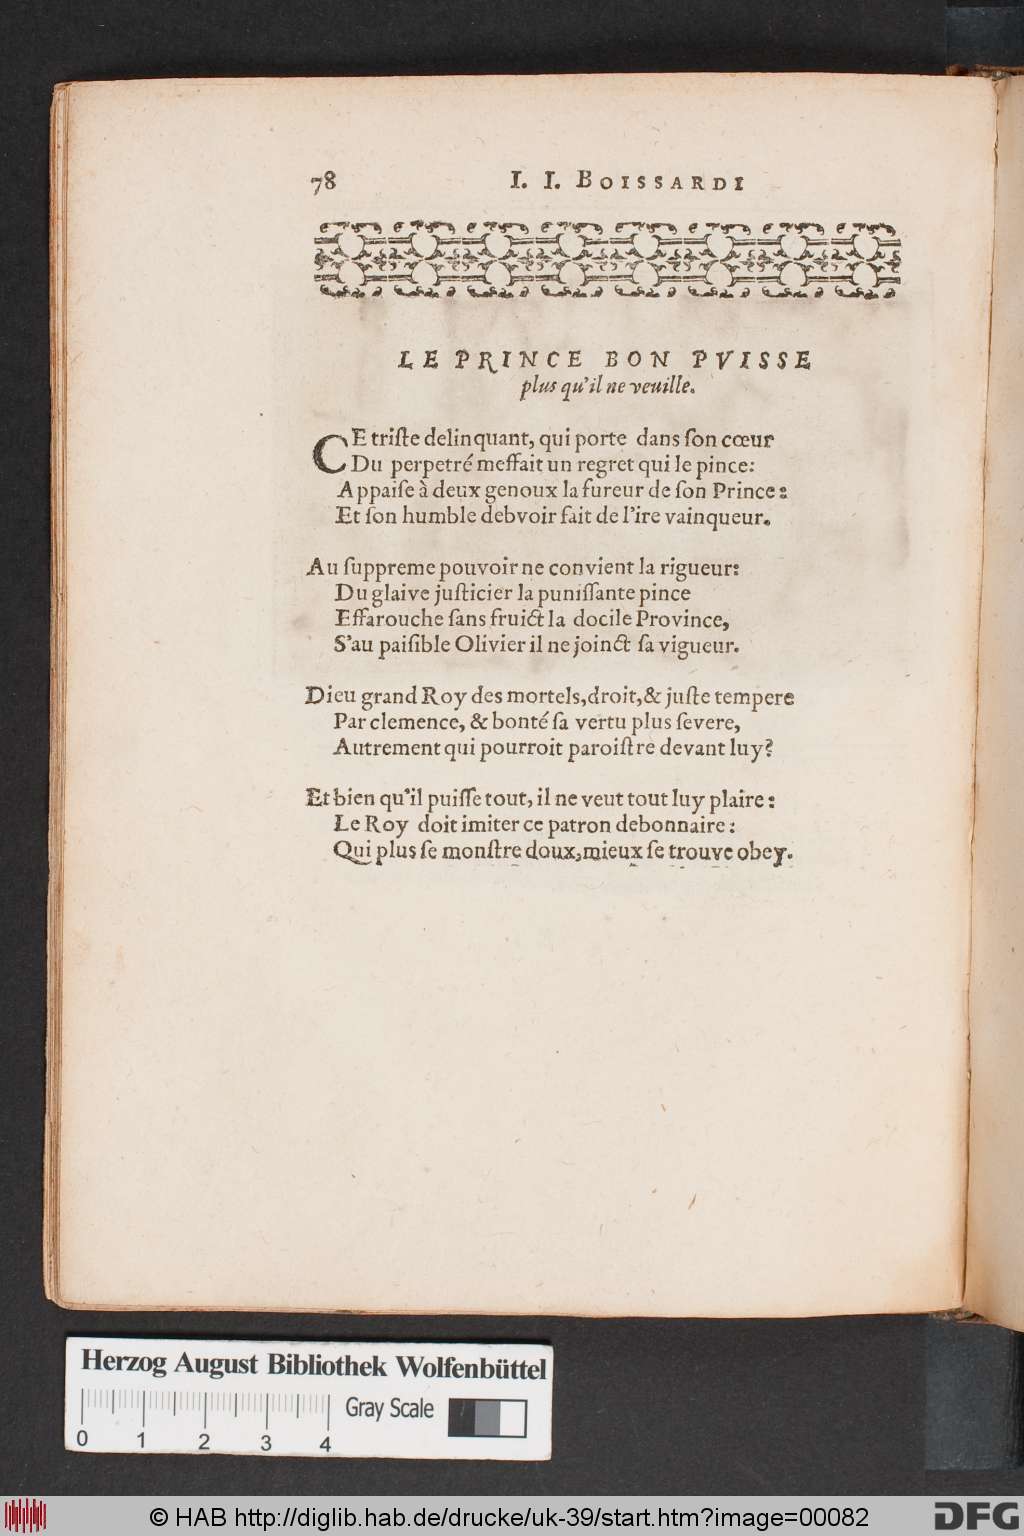 78 I. I. BOISSARDI
LE PRINCE BON PVISSE
plus qu'il ne veuille.
CE triſte delinquant, qui porte dans ſon cœur
Du perpetré meffait un regret qui le pince:
Appaiſe à deux genoux la fureur de ſon Prince:
Et ſon humble debvoir fait de l'ire vainqueur.
Au ſuppreme pouvoir ne convient la rigueur:
Du glaive juſticier la puniſſante pince
Effarouche ſans fruict la docile Province,
S'au paiſible Olivier il ne joinct ſa vigueur.
Dieu grand Roy des mortels, droit, & juſte tempere
Par clemence, & bonté ſa vertu plus ſevere,
Autrement qui pourroit paroiſtre devant luy?
Et bien qu'il puiſſe tout, il ne veut tout luy plaire:
Le Roy doit imiter ce patron debonnaire:
Qui plus ſe monſtre doux, mieux ſe trouve obey.
Herzog August Bibliothek Wolfenbüttel
Gray Scale
0 1 2 3 4
© HAB http://diglib.hab.de/drucke/uk-39/start.htm?image=00082
DFG